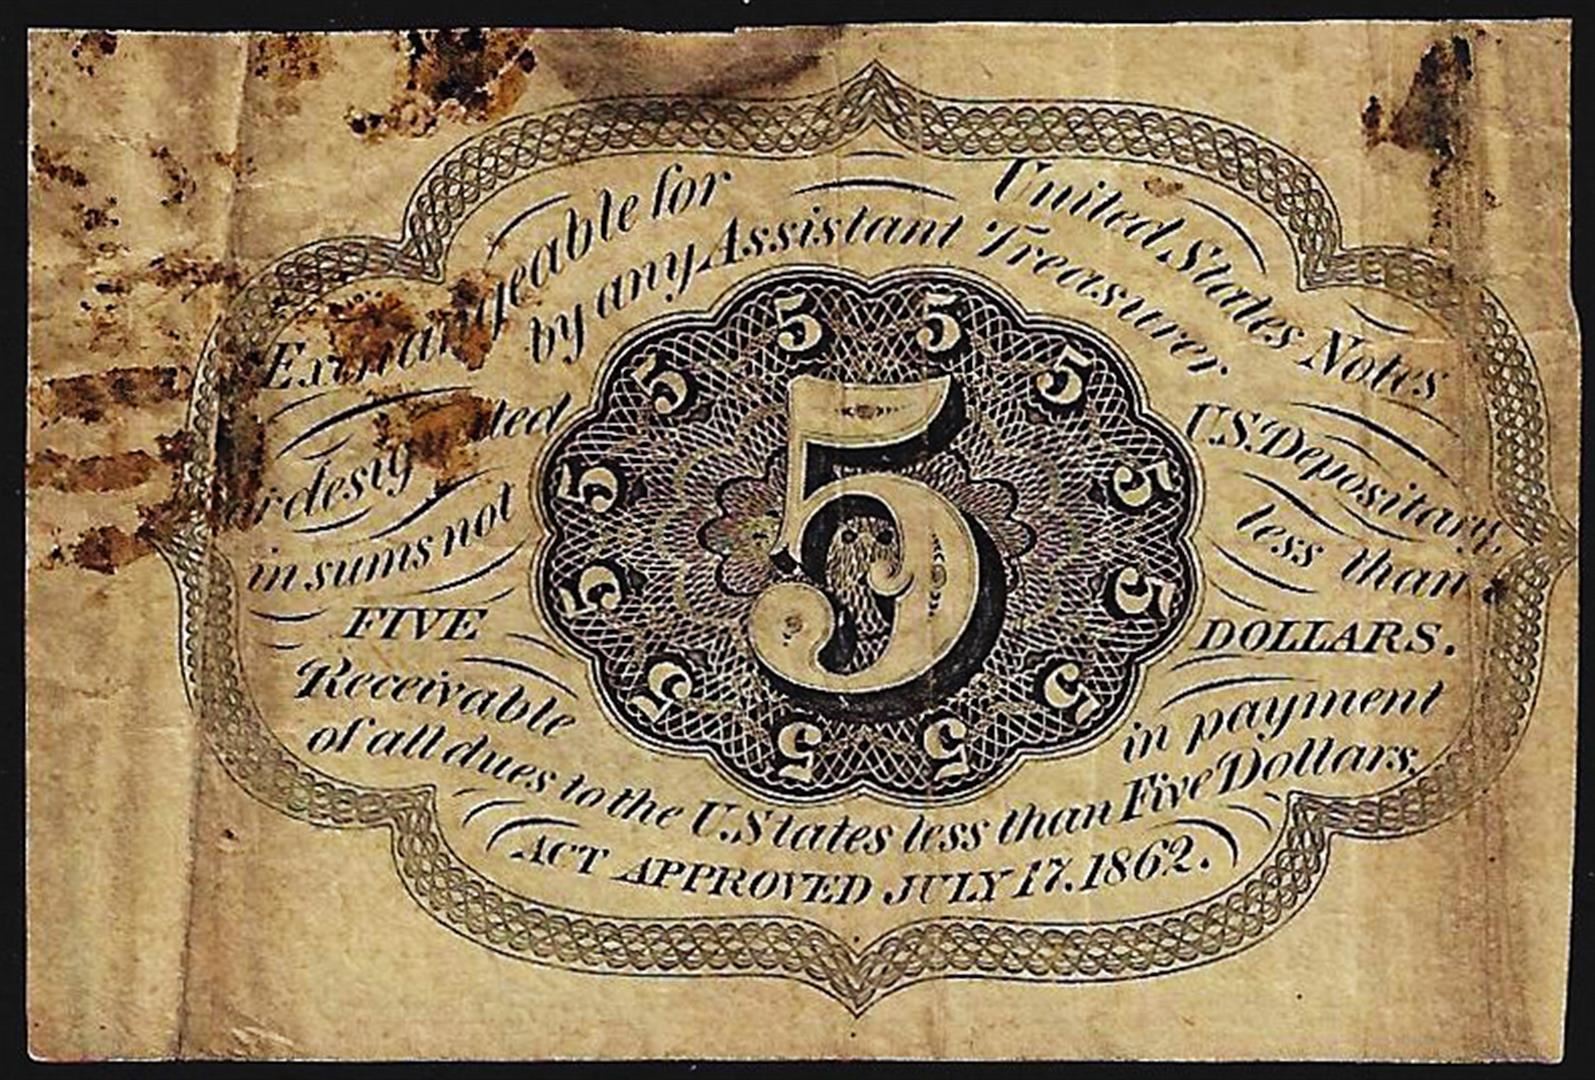 Exchangeable for United States Notes
by any Assistant Treasurer
or designated U.S. Depositary
in sums not less than
FIVE DOLLARS.
Receivable in payment
of all dues to the U. States less than Five Dollars.
ACT APPROVED JULY 17. 1862.
5
5 5 5 5 5 5 5 5 5 5 5 5